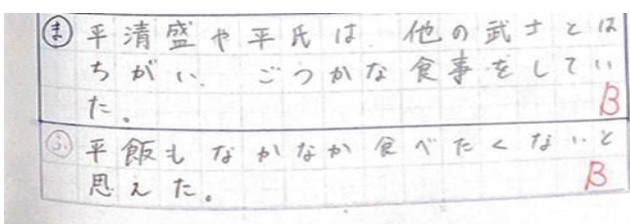 ま 平清盛や平氏は、他の武士とは
ちがい、ごうかな食事をしてい
た。 B
ふ 平飯もなかなか食べたくないと
思えた。 B